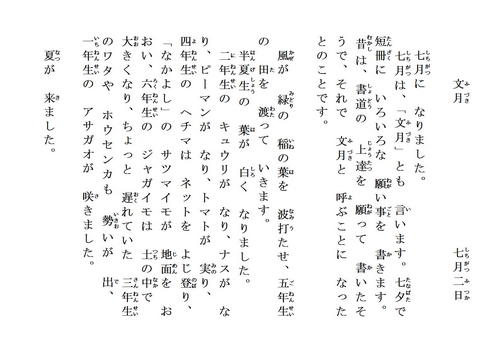 文月　七月二日
七月に　なりました。
七月は、「文月」とも　言います。七夕で
短冊に　いろいろな　願い事を　書きます。
昔は、書道の　上達を　願って　書いたそ
うで、それで　文月と　呼ぶことに　なった
とのことです。
風が　緑の　稲の葉を　波打たせ、五年生
の　田を　渡って　いきます。
半夏生の　葉が　白く　なりました。
二年生の　キュウリが　なり、ナスが　な
り、ピーマンが　なり、トマトが　実り、
四年生の　ヘチマは　ネットを　よじ登り、
「なかよし」の　サツマイモが　地面を　お
おい、六年生の　ジャガイモは　土の中で
大きくなり、ちょっと　遅れていた　三年生
のワタや　ホウセンカも　勢いが　出、
一年生の　アサガオが　咲きました。
夏が　来ました。